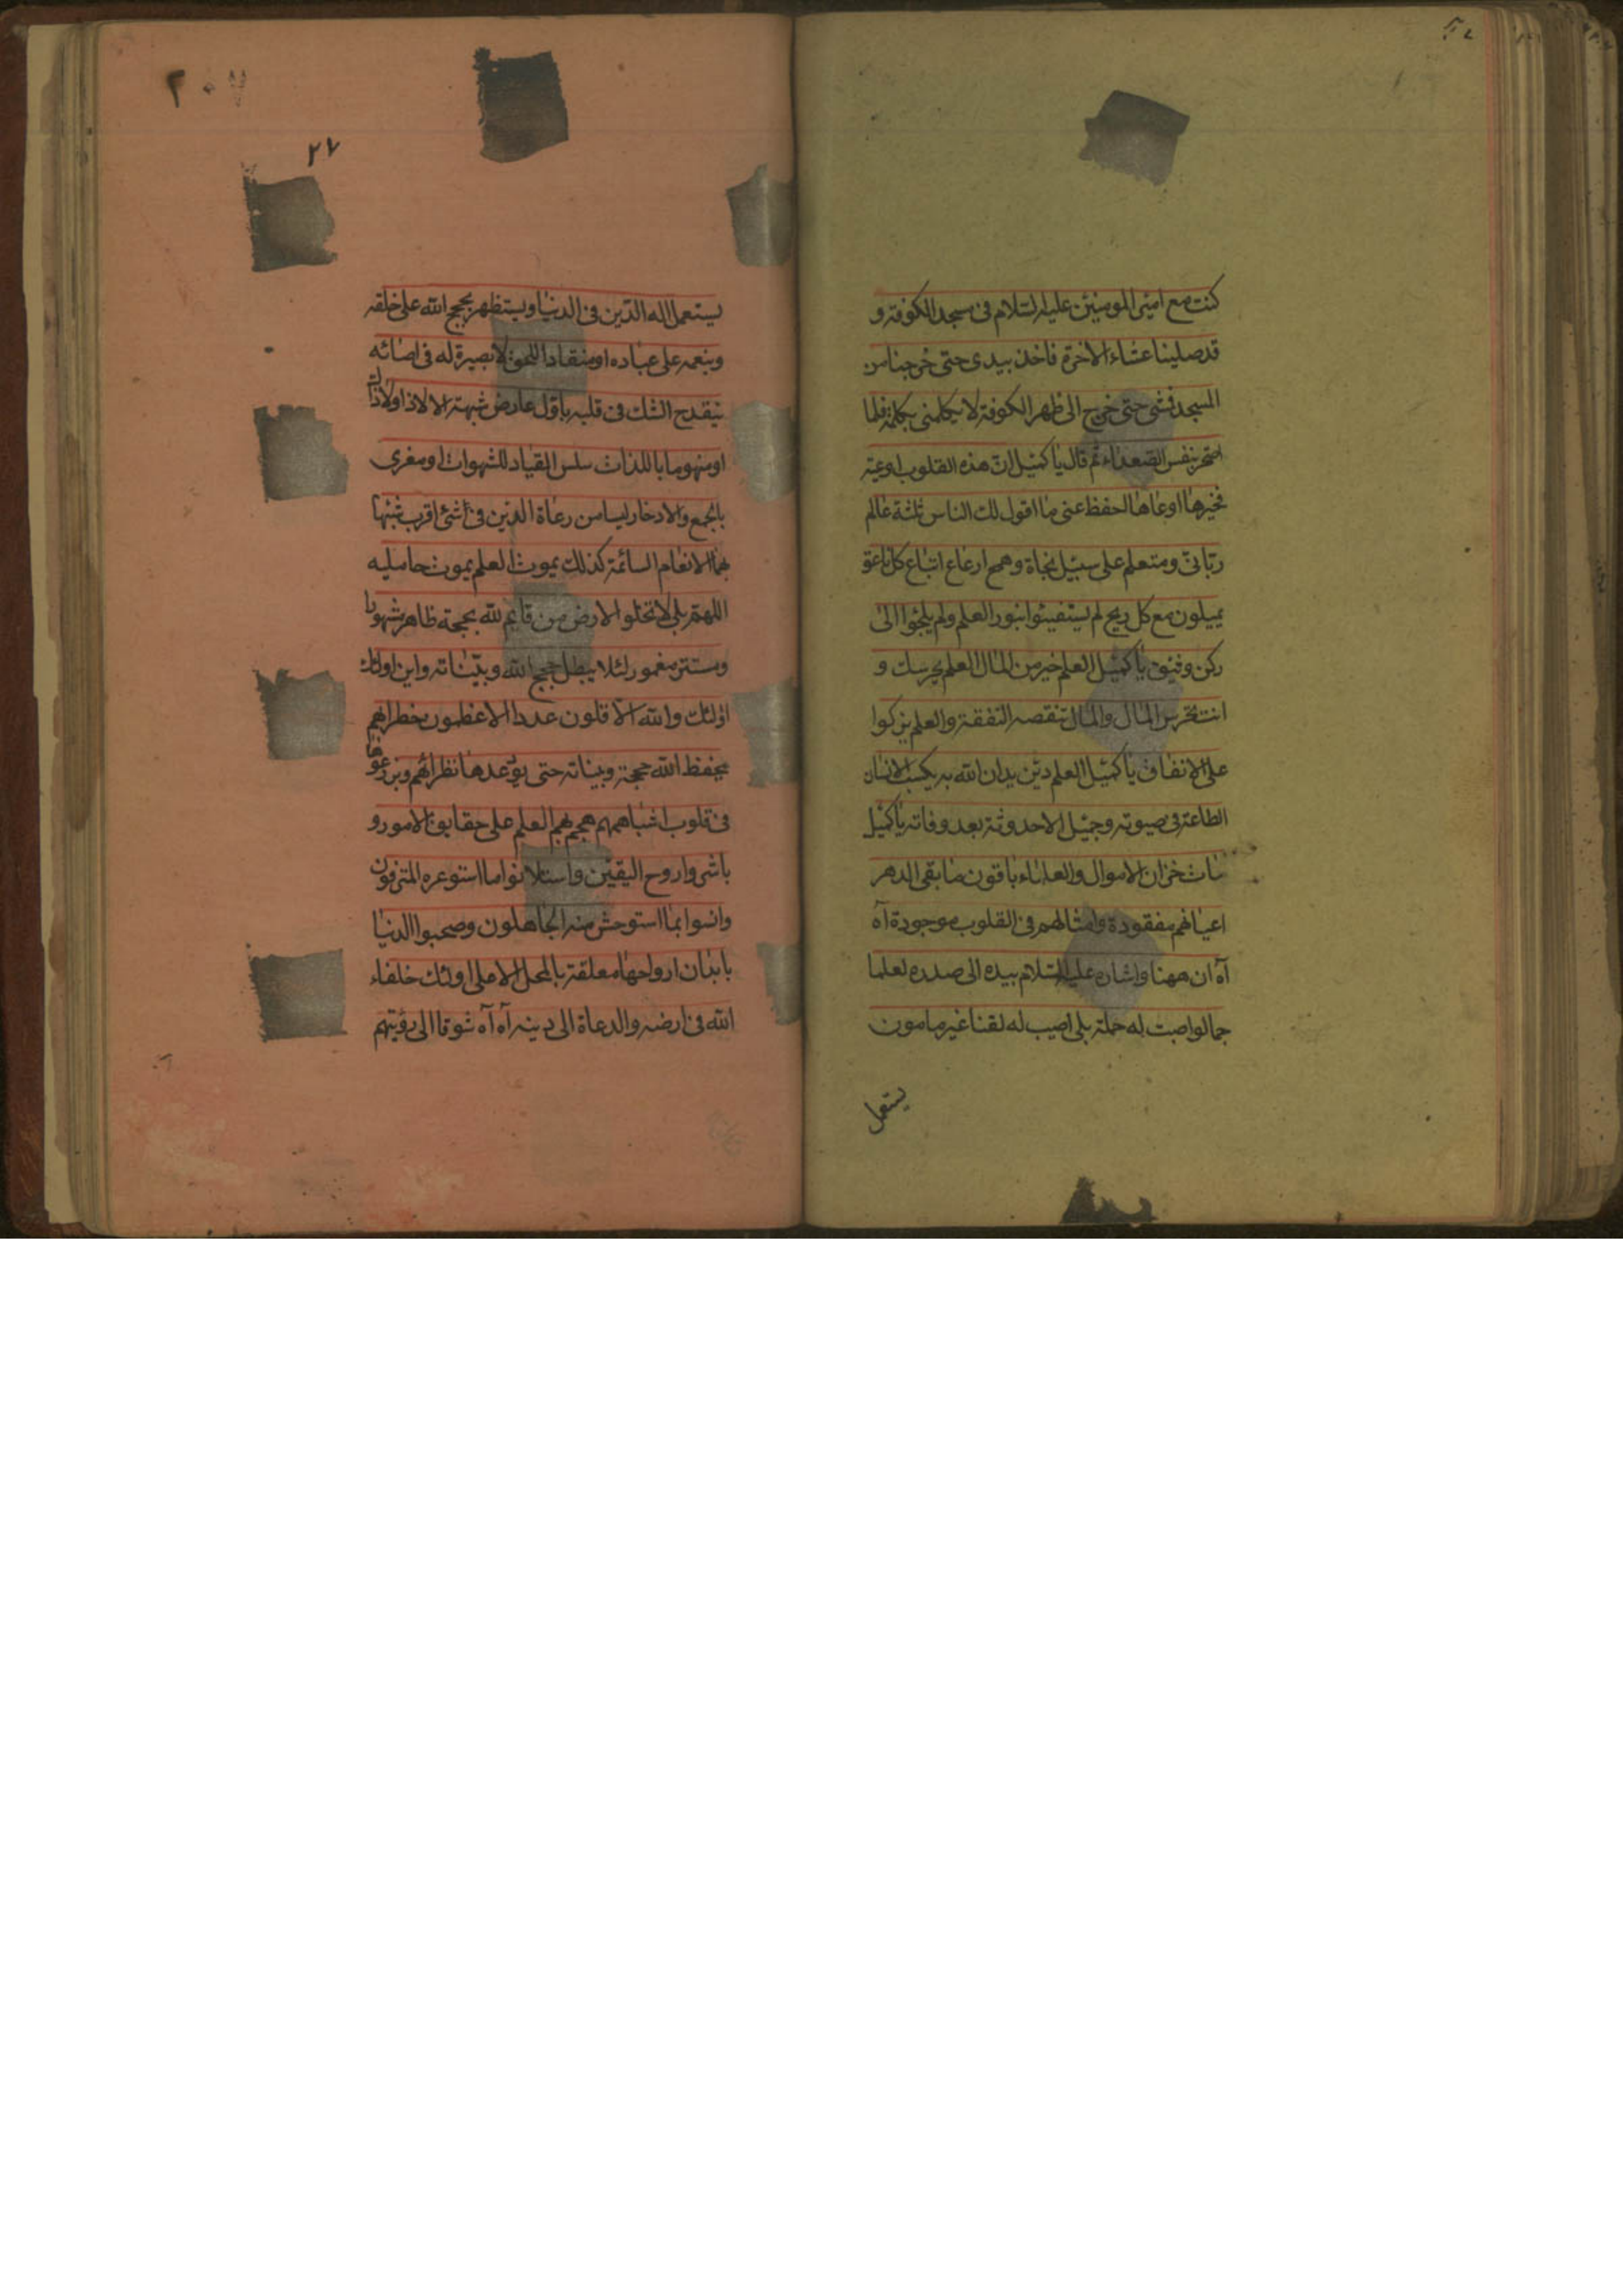 كنت مع امير المومنين عليه السلام فى مسجد الكوفة و
قد صلينا عشاء الاخرة فاخذ بيدى حتى خرجنا من
المسجد فمشى حتى خرج الى ظهر الكوفة لا يكلمنى بكلمة فلما
اصحر تنفس الصعداء ثم قال يا كميل ان هذه القلوب اوعية
فخيرها اوعاها احفظ عنى ما اقول لك الناس ثلثة عالم
ربانى ومتعلم على سبيل نجاة وهمج ارعاع اتباع كل ناعق
يميلون مع كل ريح لم يستضيئوا بنور العلم ولم يلجئوا الى
ركن وثيق يا كميل العلم خير من المال العلم يحرسك و
انت تحرس المال والمال تنقصه النفقة والعلم يزكوا
على الانفاق يا كميل العلم دين يدان الله به يكسب الانسان
الطاعة فى حيوته وجميل الاحدوثة بعد وفاته يا كميل
مات خزان الاموال والعلماء باقون ما بقى الدهر
اعيانهم مفقودة وامثالهم فى القلوب موجودة آه
آه ان ههنا واشار عليه السلام بيده الى صدره لعلما
جما لو اصبت له حملة بلى اصيب له لقنا غير مامون
يستعمل
٢٠٧
٢٧
يستعمل اله الدين فى الدنيا ويستظهر بحجج الله على خلقه
وبنعمه على عباده او منقادا للحق لا بصيرة له فى احنائه
ينقدح الشك فى قلبه باول عارض شبهة الا لاذا ولاذاك
او منهوما باللذات سلس القياد للشهوات او مغرى
بالجمع والادخار ليسا من رعاة الدين فى شئ اقرب شبها
بهما الانعام السائمة كذلك يموت العلم بموت حامليه
اللهم بلى لا تخلوا الارض من قايم لله بحجة ظاهر مشهور
ومستتر مغمور لئلا يبطل حجج الله وبيناته واين اولئك
اولئك والله الاقلون عددا الاعظمون خطرا بهم
يحفظ الله حججه وبيناته حتى يودعدها نظرائهم ويزرعوها
فى قلوب اشباههم هجم بهم العلم على حقايق الامور و
باشروا روح اليقين واستلانوا ما استوعره المترفون
وانسوا بما استوحش منه الجاهلون وصحبوا الدنيا
بابدان ارواحها معلقة بالمحل الاعلى اولئك خلفاء
الله فى ارضه والدعاة الى دينه آه آه شوقا الى رؤيتهم